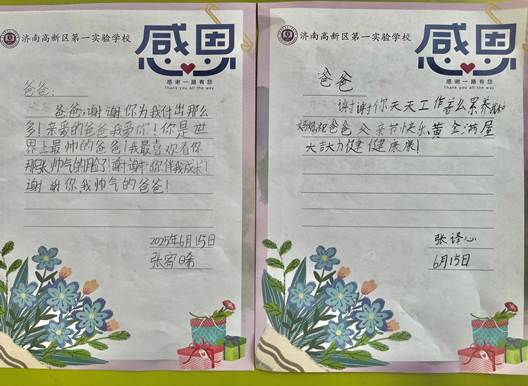 济南高新区第一实验学校
感恩
感谢一路有您
Thank you all the way
爸爸:
爸爸,谢谢你为我付出那么
多!亲爱的爸爸我爱你!你是世
界上最帅的爸爸!我最喜欢看你
那张帅气的脸了!谢谢你伴我成长!
谢谢你,我帅气的爸爸!
2025年6月15日
张
济南高新区第一实验学校
感恩
感谢一路有您
Thank you all the way
爸爸
谢谢你天天工作那么累养我
妈妈祝爸爸父亲节快乐黄金满屋
大吉大力健健康康!
张译心
6月15日